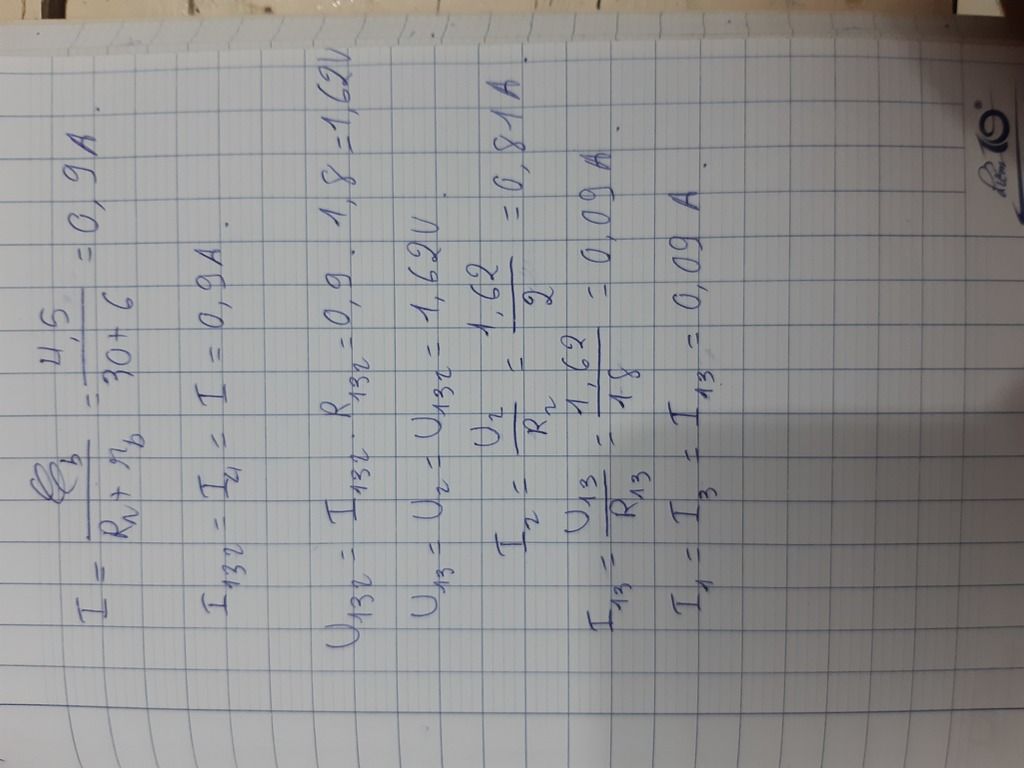 I = ℰb / (RN + rb) = 4,5 / (30 + 6) = 0,9 A.
I132 = I4 = I = 0,9 A.
U132 = I132 . R132 = 0,9 . 1,8 = 1,62V
U13 = U2 = U132 = 1,62V
I2 = U2 / R2 = 1,62 / 2 = 0,81 A.
I13 = U13 / R13 = 1,62 / 18 = 0,09 A.
I1 = I3 = I13 = 0,09 A.